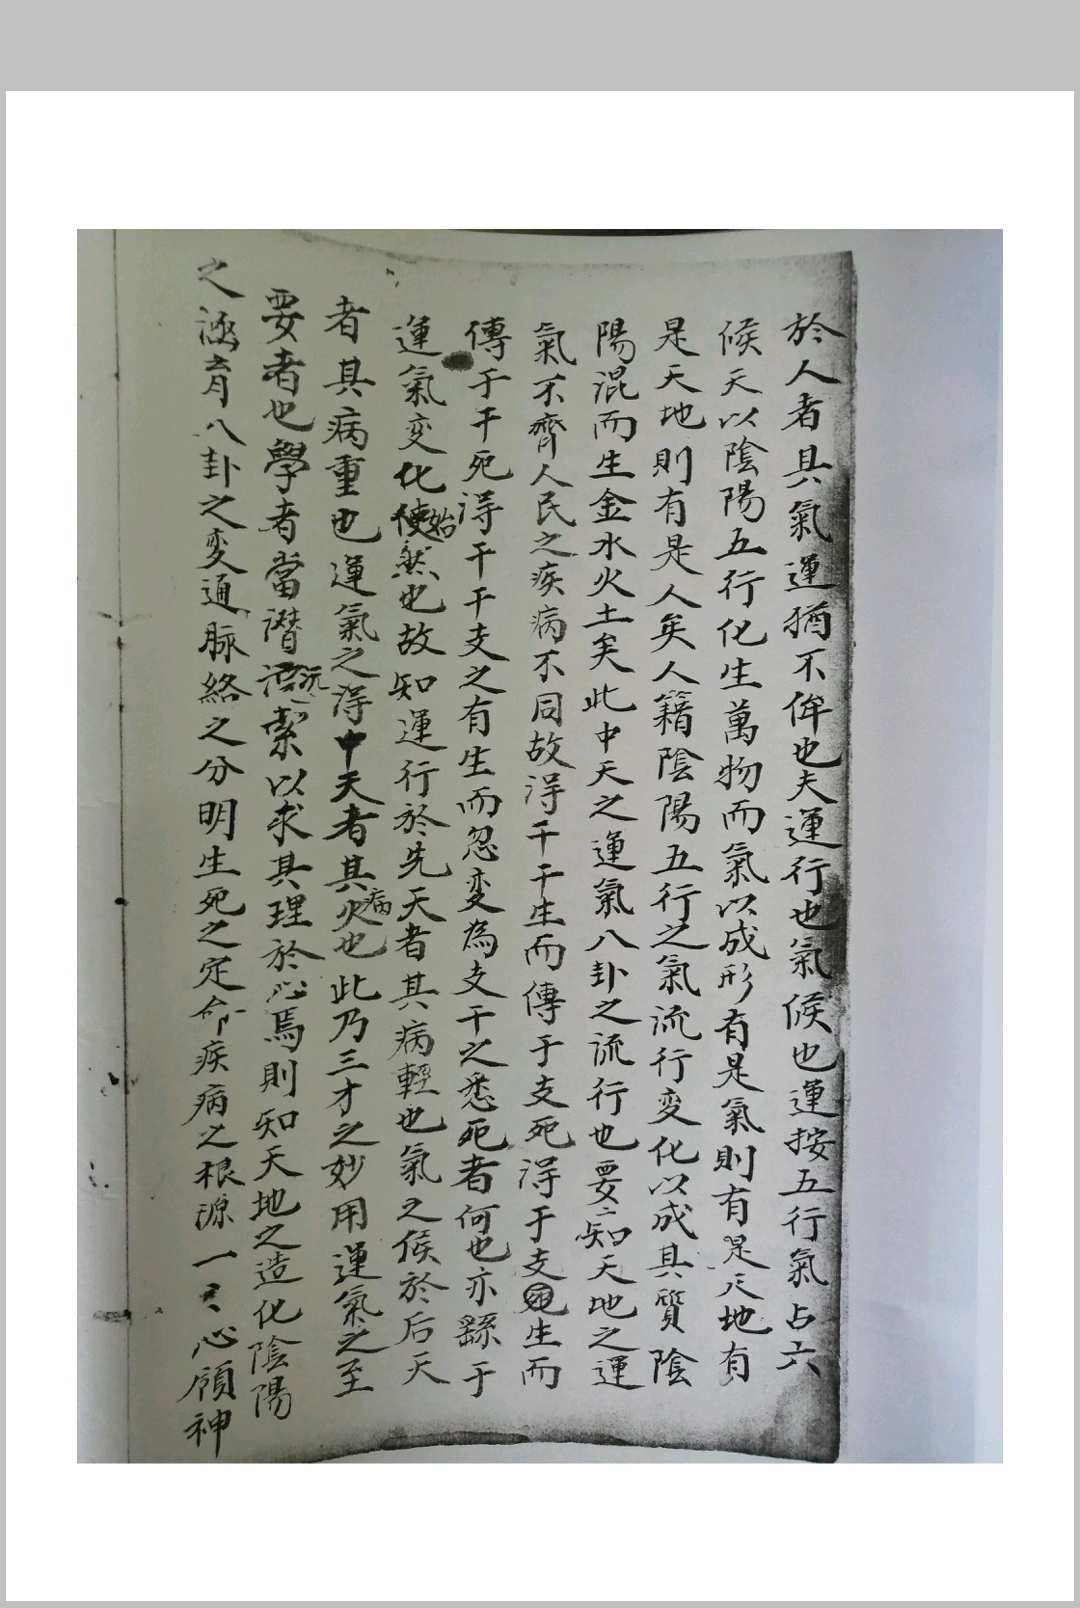 於人者具氣運猶不侔也夫運行也氣候也運按五行氣占六
候天以陰陽五行化生萬物而氣以成形有是氣則有是天地有
是天地則有是人矣人籍陰陽五行之氣流行变化以成其質陰
陽混而生金水火土矣此中天之運氣八卦之流行也要知天地之運
氣不齊人民之疾病不同故淂干干生而傳于支死淂于支生而
傳于干死淂干干支之有生而忽变為支干之悉死者何也亦繇于
運氣变化始然也故知運行於先天者其病輕也氣之候於后天
者其病重也運氣之淂中天者其病也此乃三才之妙用運氣之至
要者也學者當潛沉索以求其理於心焉則知天地之造化陰陽
之涵育八卦之变通脉絡之分明生死之定命疾病之根源一心領神